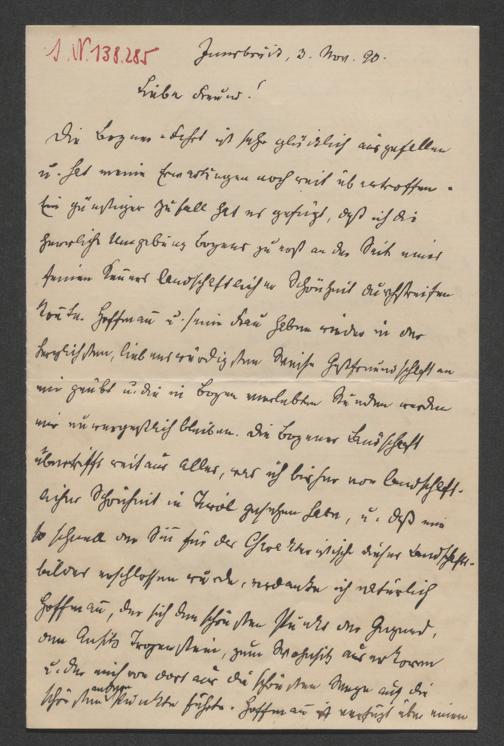 I. N. 138.285
Innsbruck, 3. Nov. 90.
Liebe Freund!
Die Bozner-Fahrt ist sehr glücklich ausgefallen
u. hat meine Erwartungen noch weit übertroffen.
Ein günstiger Zufall hat es gefügt, daß ich die
herrliche Umgebung Bozens zuerst an der Seite eines
feinen Kenners landschaftlicher Schönheit durchstreifen
konnte. Hoffmann u. seine Frau haben wieder in der
herzlichsten, liebenswürdigsten Weise Gastfreundschaft an
mir geübt u. die in Bozen verlebten Stunden werden
mir unvergeßlich bleiben. Die Bozener Landschaft
übertrifft weitaus alles, was ich bisher von landschaft-
licher Schönheit in Tirol gesehen habe, u. daß mir
so schnell der Sinn für das Charakteristische dieser Landschafts-
bilder erschlossen wurde, verdanke ich natürlich
Hoffmann, der sich den schönsten Punkt der Gegend,
den Ansitz Treuenstein, zum Wohnsitz auserkoren
u. der mich von dort aus die schönsten Wege auf die
schönsten anderen Punkte führte. Hoffmann verfügt über einen